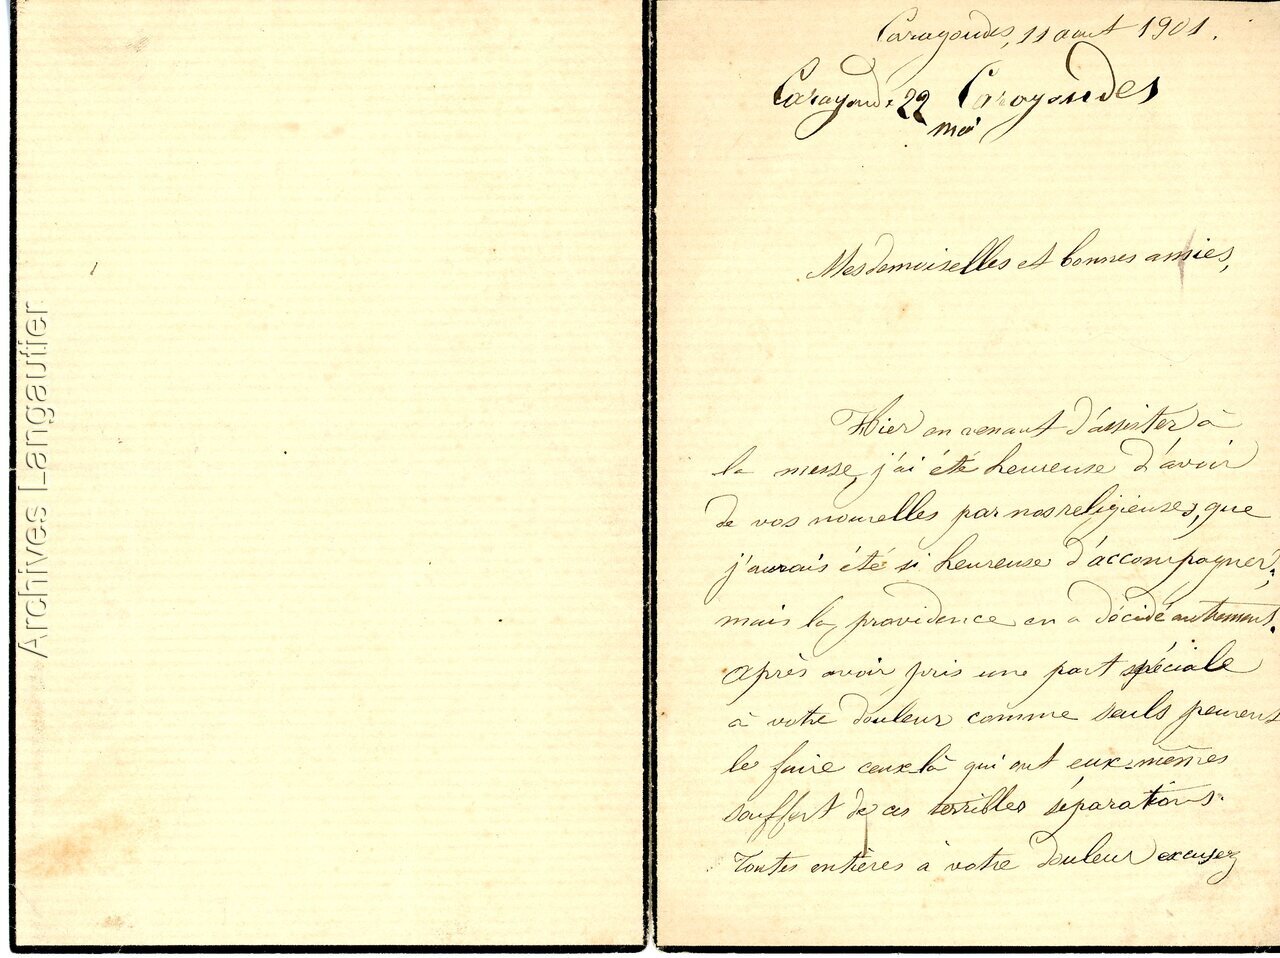 Archives Langautier
Carayondes, 11 aout 1901.
Carayond 22 Carayondes
mai
Mesdemoiselles et bonnes amies,
Hier en venant d'assister à
la messe, j'ai été heureuse d'avoir
de vos nouvelles par nos religieuses, que
j'aurais été si heureuse d'accompagner,
mais la providence en a décidé autrement.
après avoir pris une part spéciale
à votre douleur comme seuls peuvent
le faire ceux là qui ont eux-mêmes
souffert de ces terribles séparations.
Toutes entières à votre douleur excusez